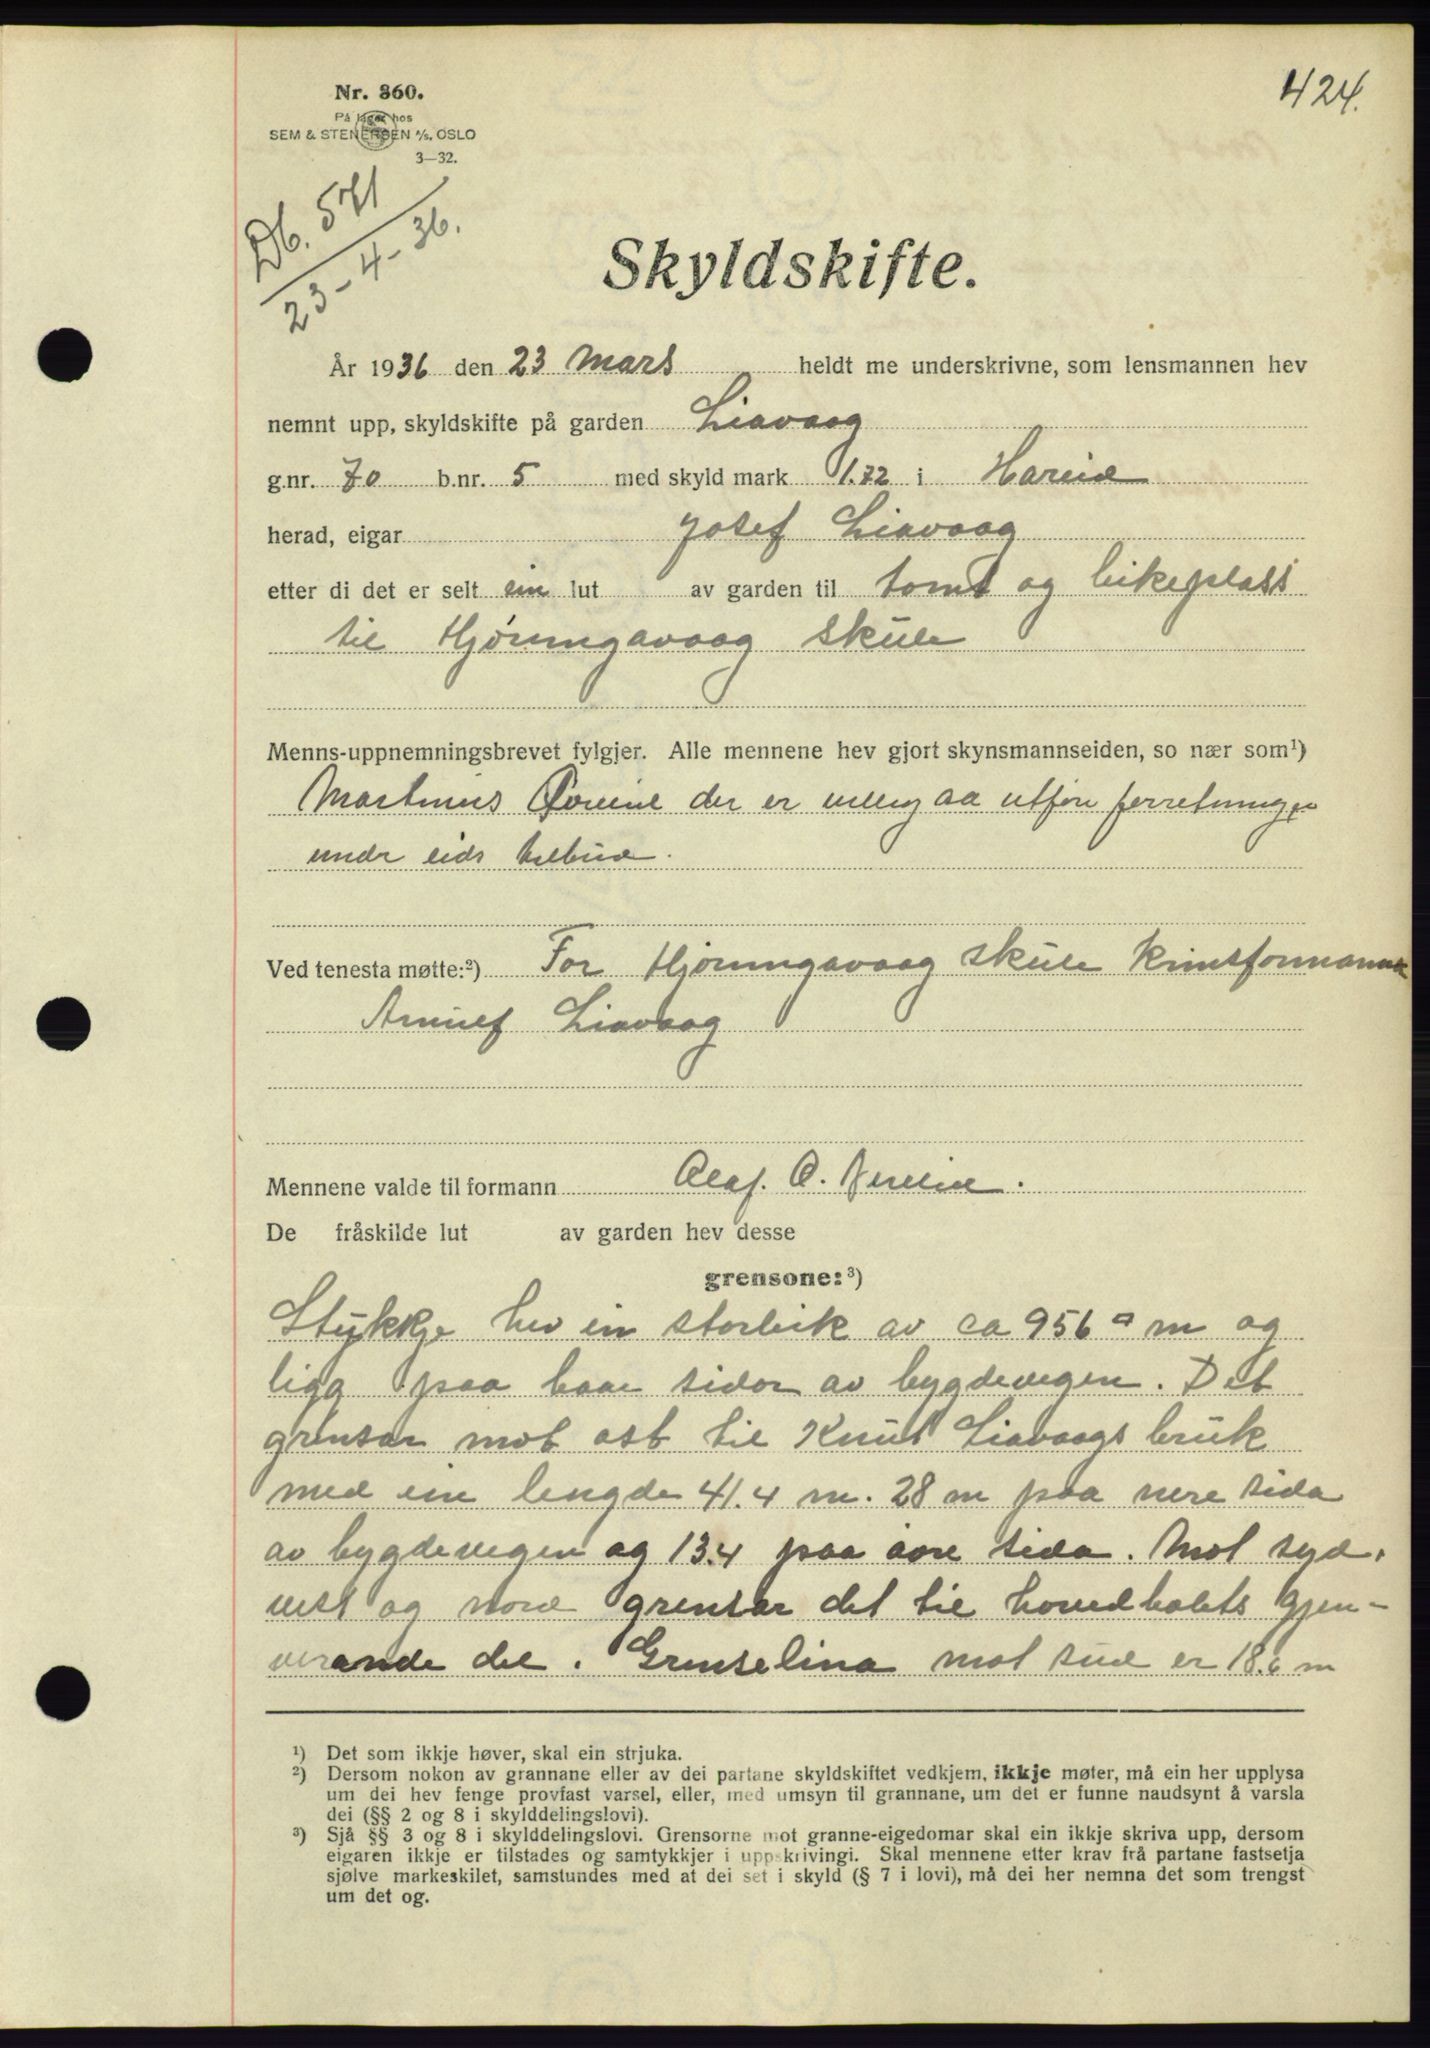 424.
Nr. 360.
På lager hos
SEM & STENERSEN A/S, OSLO
3—32.
Db. 571
23-4-36.
Skyldskifte.
År 1936 den 23 Mars heldt me underskrivne, som lensmannen hev
nemnt upp, skyldskifte på garden Liavaag
g.nr. 70 b.nr. 5 med skyld mark 1.72 i Hareid
herad, eigar Josef Liavaag
etter di det er selt ein lut av garden til tomt og leikeplass
til Hjørungavaag skule
Menns-uppnemningsbrevet fylgjer. Alle mennene hev gjort skynsmannseiden, so nær som¹)
Martinus der er villig aa utføre forretningen
under eids tilbud.
Ved tenesta møtte:²) For Hjørungavaag skule Krinsformann
Liavaag
Mennene valde til formann Olaf. O.
De fråskilde lut av garden hev desse
grensone:³)
Stykkje hev ein storleik av ca 956 □ m og
ligg paa baae sidor av bygdevegen. Det
grensar mot ost til Knut Liavaags bruk
med ein lengde 41.4 m. 28 m paa nere sida
av bygdevegen og 13.4 paa øvre sida. Mot syd,
vest og nord grensar det til hovedbølets gjen-
verande del. Grenselina mot sud er 18.6 m
¹) Det som ikkje høver, skal ein strjuka.
²) Dersom nokon av grannane eller av dei partane skyldskiftet vedkjem, ikkje møter, må ein her upplysa
um dei hev fenge provfast varsel, eller, med umsyn til grannane, um det er funne naudsynt å varsla
dei (§§ 2 og 8 i skylddelingslovi).
³) Sjå §§ 3 og 8 i skylddelingslovi. Grensorne mot granne-eigedomar skal ein ikkje skriva upp, dersom
eigaren ikkje er tilstades og samtykkjer i uppskrivingi. Skal mennene etter krav frå partane fastsetja
sjølve markeskilet, samstundes med at dei set i skyld (§ 7 i lovi), må dei her nemna det som trengst
um det og.